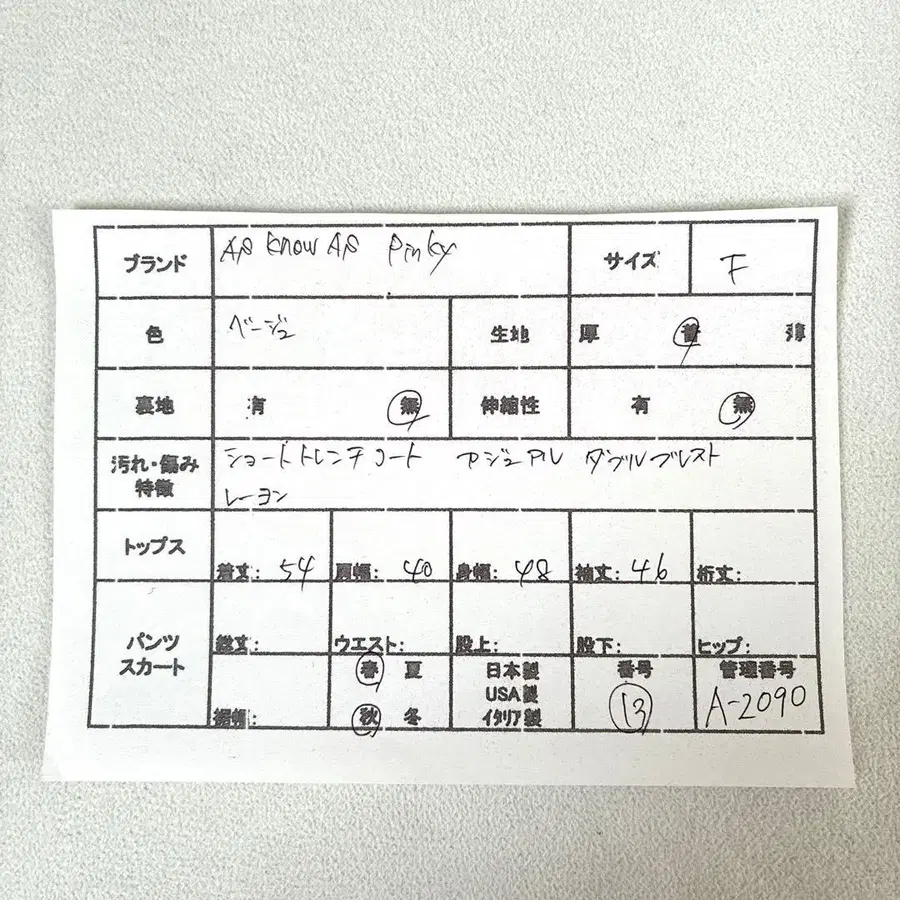 ブランド AS KNOW AS Pinky サイズ F
色 ベージュ 生地 厚 普 薄
裏地 有 無 伸縮性 有 無
汚れ・傷み ショートトレンチコート カジュアル ダブルブレスト
特徴 レーヨン
トップス 着丈: 54 肩幅: 40 身幅: 48 袖丈: 46 裄丈:
パンツ スカート 総丈: ウエスト: 股上: 股下: ヒップ:
裾幅: 春 夏 日本製 番号 管理番号
USA製
秋 冬 イタリア製 13 A-2090